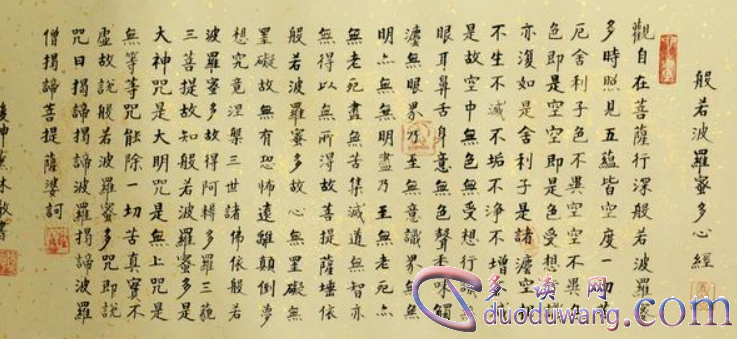 般若波羅蜜多心經
觀自在菩薩行深般若波羅蜜
多時照見五蘊皆空度一切苦
厄舍利子色不異空空不異色
色即是空空即是色受想行識
亦復如是舍利子是諸灋空相
不生不滅不垢不淨不增不減
是故空中無色無受想行識無
眼耳鼻舌身意無色聲香味觸
灋無眼界乃至無意識界無無
明亦無無明盡乃至無老死亦
無老死盡無苦集滅道無智亦
無得以無所得故菩提薩埵依
般若波羅蜜多故心無罣礙無
罣礙故無有恐怖遠離顛倒夢
想究竟涅槃三世諸佛依般若
波羅蜜多故得阿耨多羅三藐
三菩提故知般若波羅蜜多是
大神咒是大明咒是無上咒是
無等等咒能除一切苦真實不
虛故說般若波羅蜜多咒即說
咒曰揭諦揭諦波羅揭諦波羅
僧揭諦菩提薩婆訶
敬書
多读网
duoduwang.com